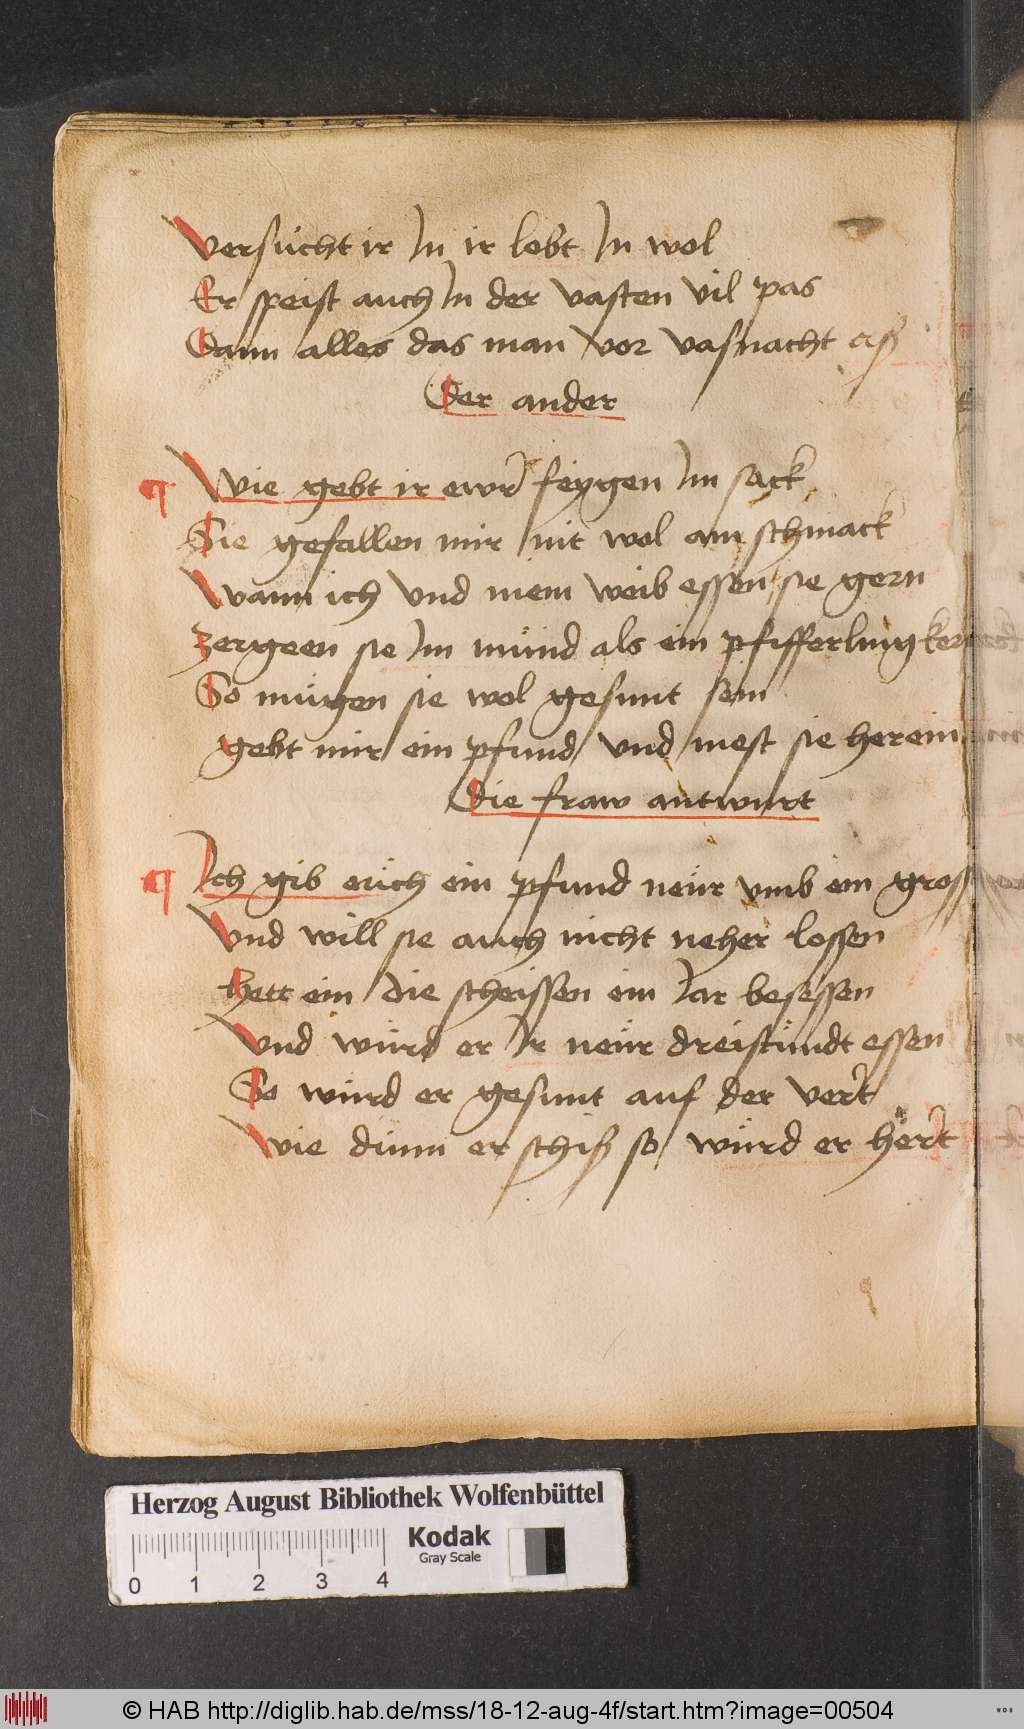 Versücht ir In ir lebt In wol
Er speist auch In der vasten vil pas
Dann alles das man vor vasnacht aß
Der ander
¶ Wie gebt ir ewr feygen Im sack
Sie gefallen mir nit wol am schmack
Wann ich vnd mein weib essen sie gern
Zergeen sie Im mund als ein pfifferlingkern
So mügen sie wol gesunt sein
gebt mir ein pfund vnd mest sie herein
Die fraw antwurt
¶ Ich gib euch ein pfund neür vmb ein gross
Vnd will sie auch nicht neher lossen
Hett ein die scheissen ein Iar besessen
Vnd würd er Ir neür dreistundt essen
So würd er gesunt auf der vert
Wie dünn er schiß so würd er hert
Herzog August Bibliothek Wolfenbüttel
Kodak
Gray Scale
0 1 2 3 4
© HAB http://diglib.hab.de/mss/18-12-aug-4f/start.htm?image=00504